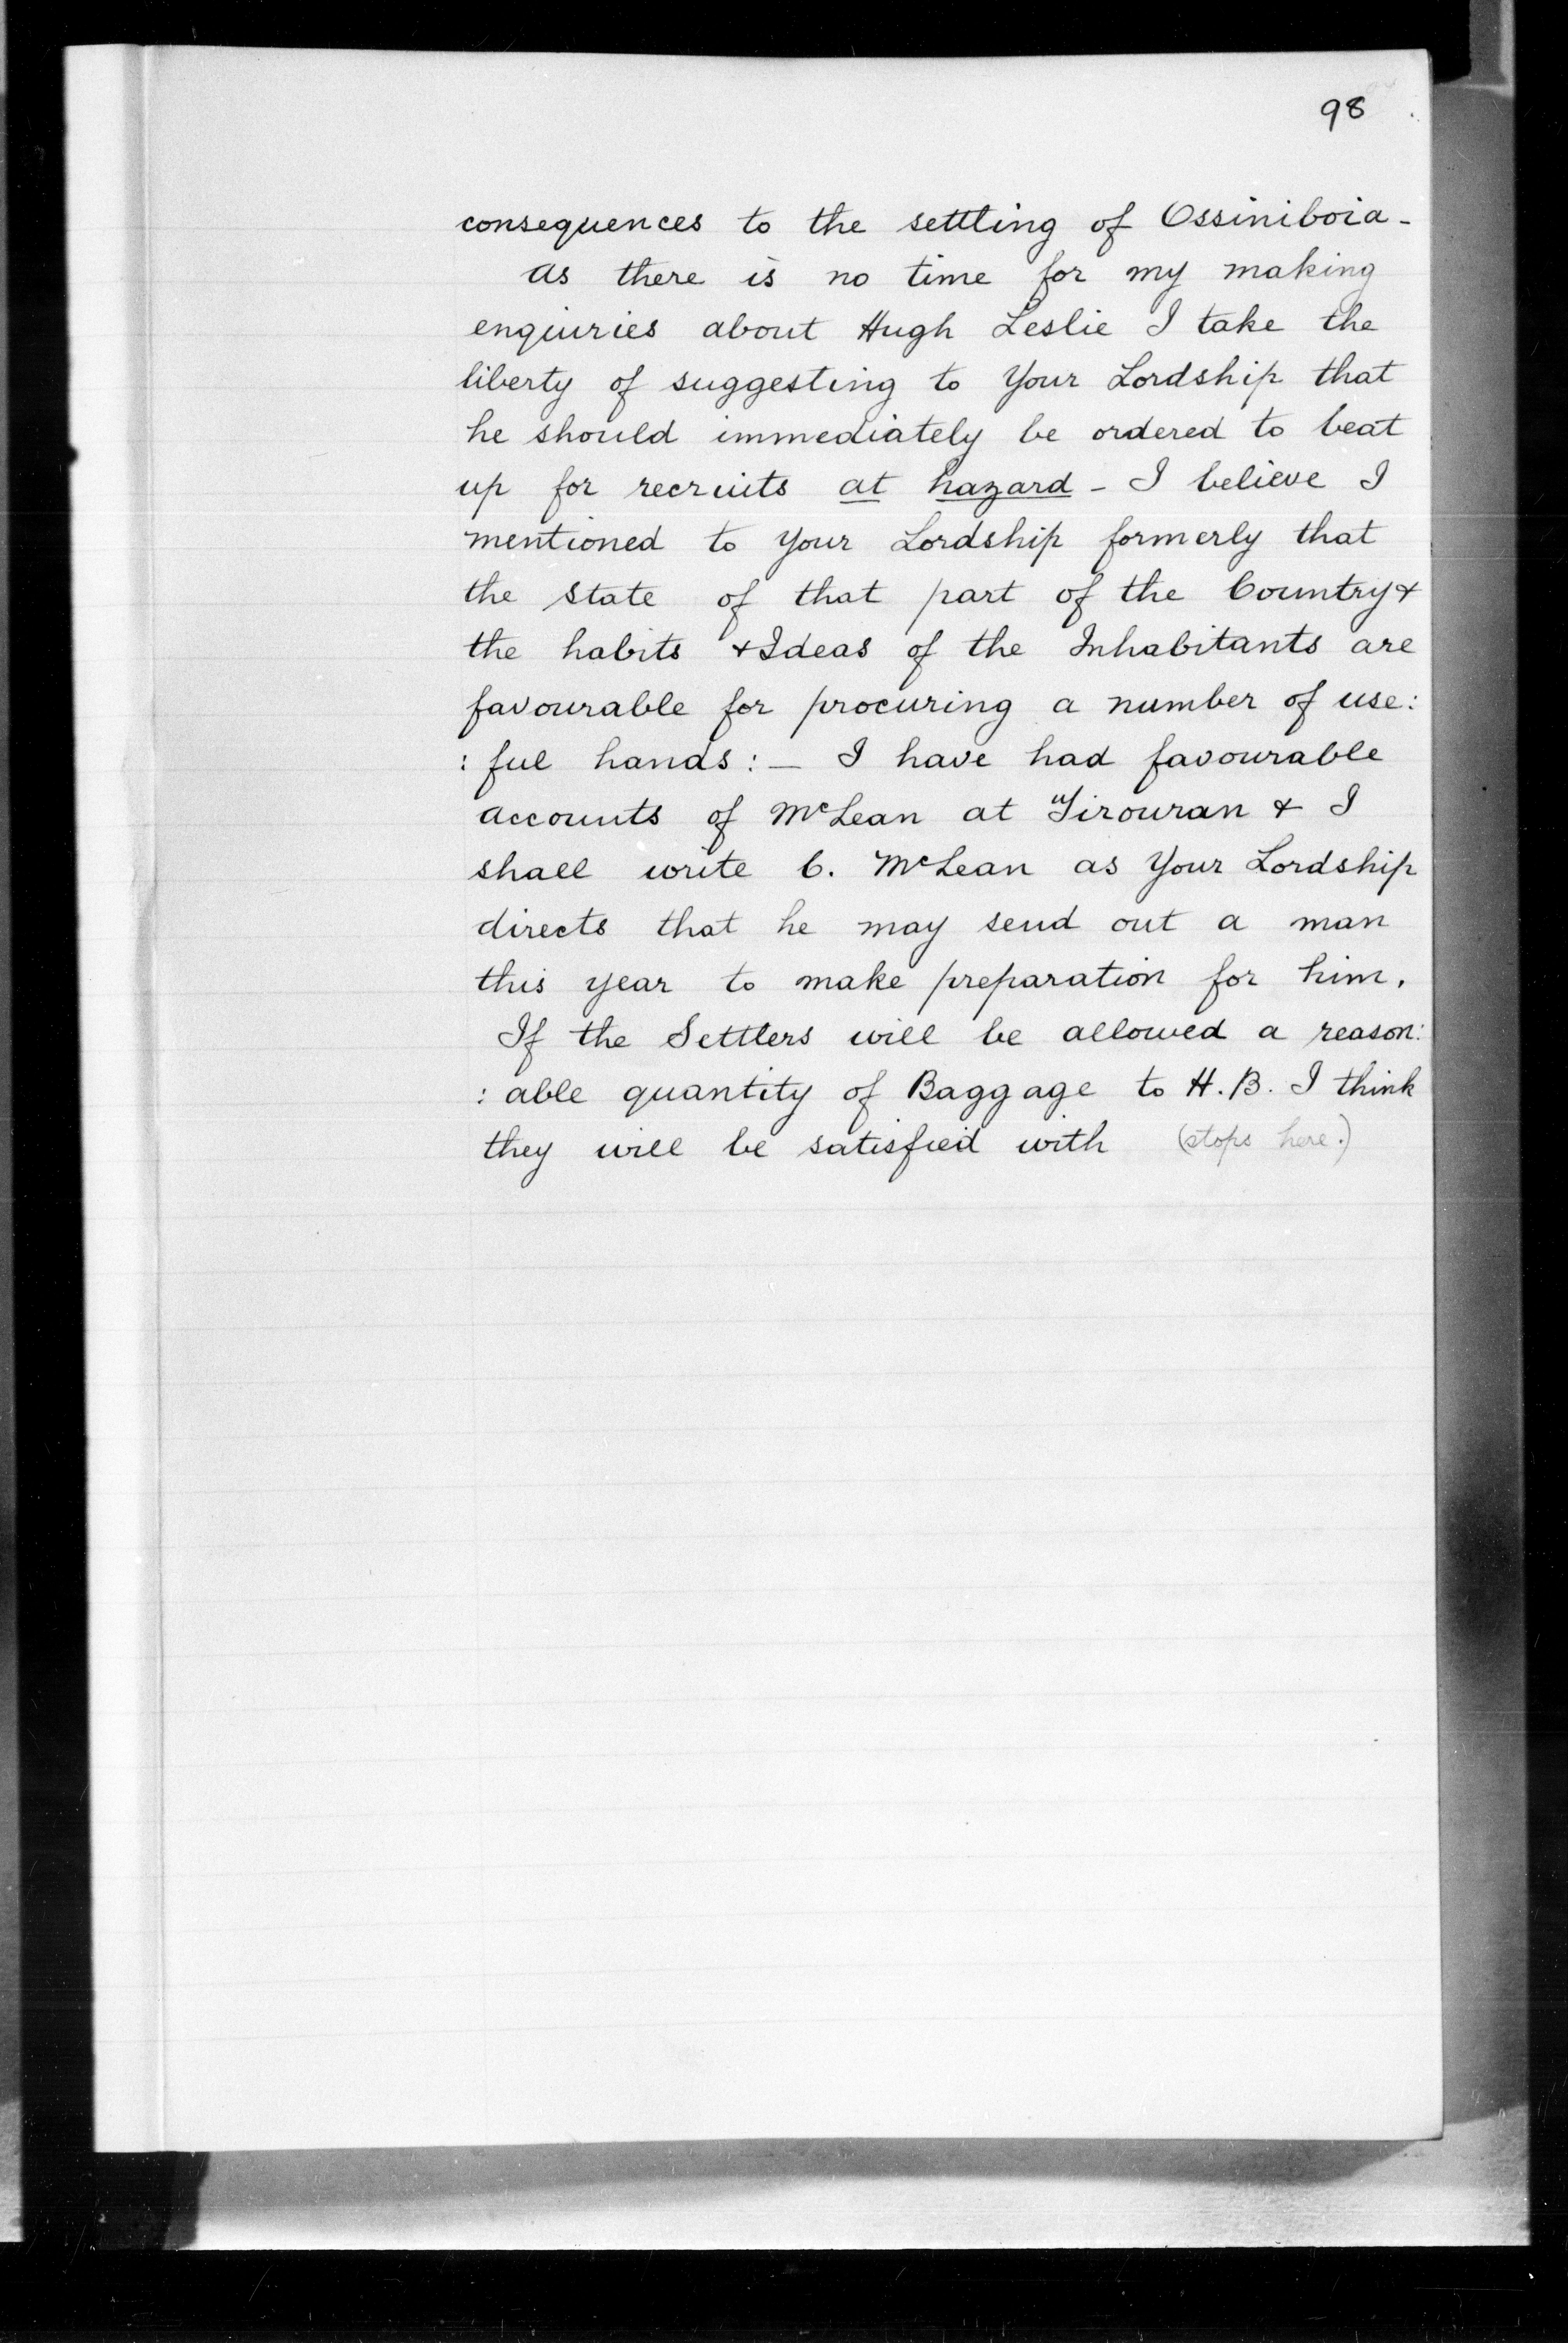 98
consequences to the settling of Ossiniboia -
As there is no time for my making
enquiries about Hugh Leslie I take the
liberty of suggesting to Your Lordship that
he should immediately be ordered to beat
up for recruits at hazard - I believe I
mentioned to Your Lordship formerly that
the State of that part of the Country &
the habits & Ideas of the Inhabitants are
favourable for procuring a number of use:
: ful hands : — I have had favourable
accounts of McLean at Tirouran & I
shall write C. McLean as Your Lordship
directs that he may send out a man
this year to make preparation for him.
If the Settlers will be allowed a reason:
: able quantity of Baggage to H.B. I think
they will be satisfied with (stops here.)